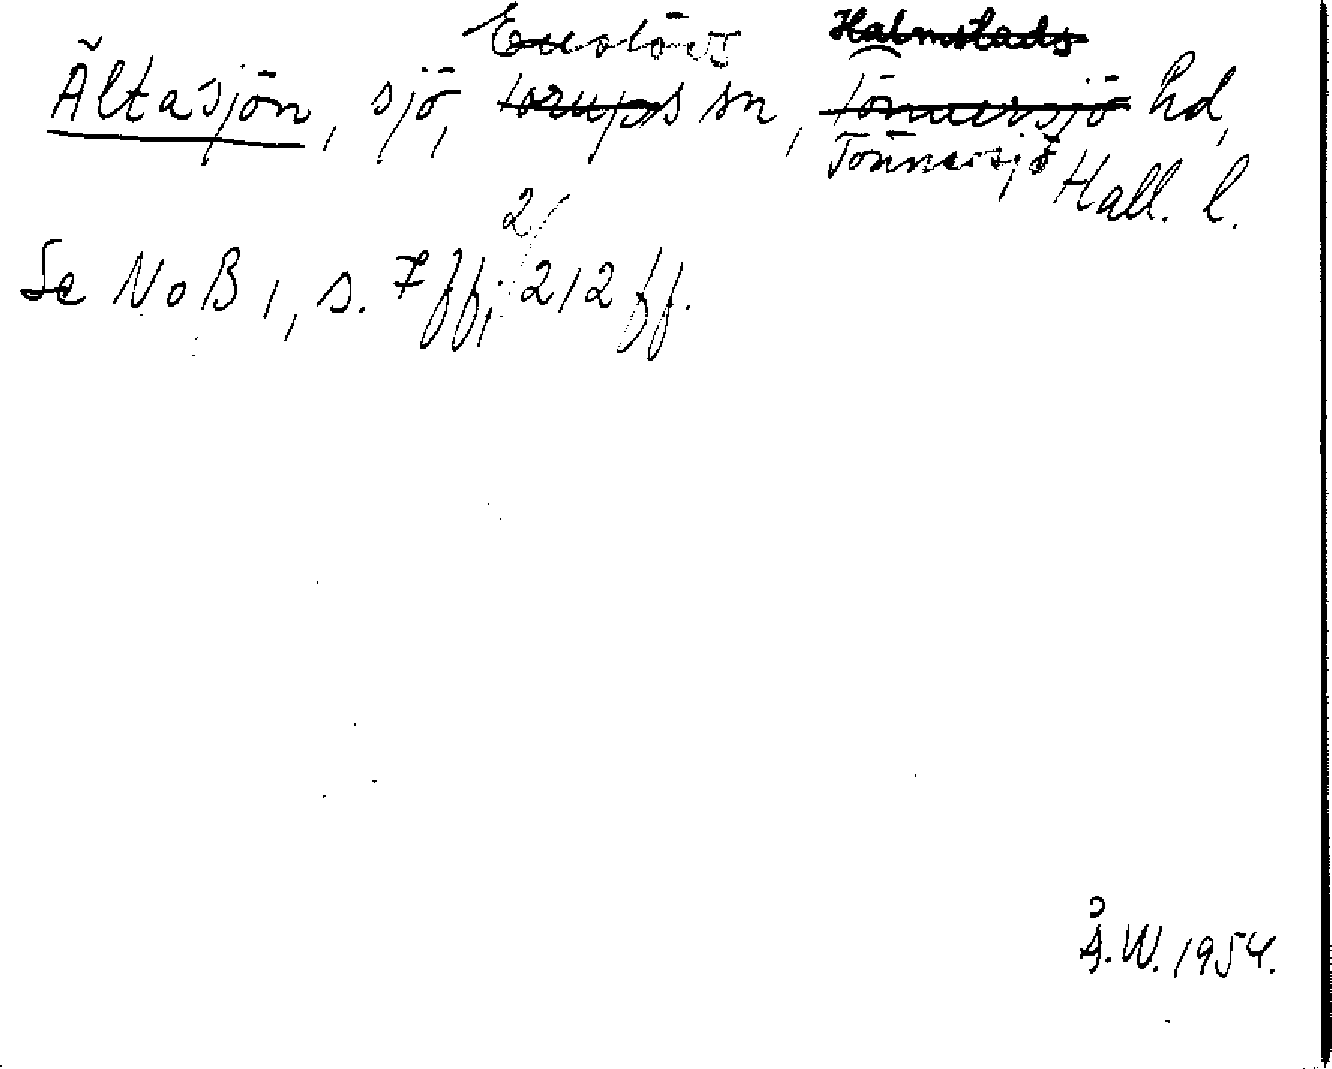 Enslövs Halmstads
Ältasjön, sjö, torups sn, Tönnersjö hd,
Tönnersjö Hall. l.
2/
Se NoB 1, s. 7 ff; 212 ff.
Å.W. 1954.